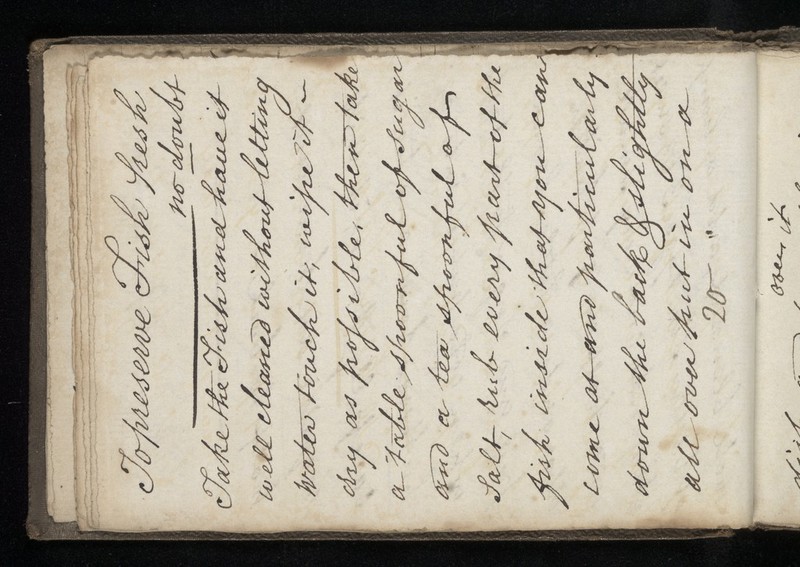 To preserve Fish fresh
no doubt
Take the Fish and have it
well cleaned without letting
water touch it, wipe it ~
dry as possible, then take
a table spoonful of Sugar
and a tea spoonful of
Salt, rub every part of the
fish inside that you can
come at and particularly
down the back & slightly
all over put in on a
20"
over it
dish